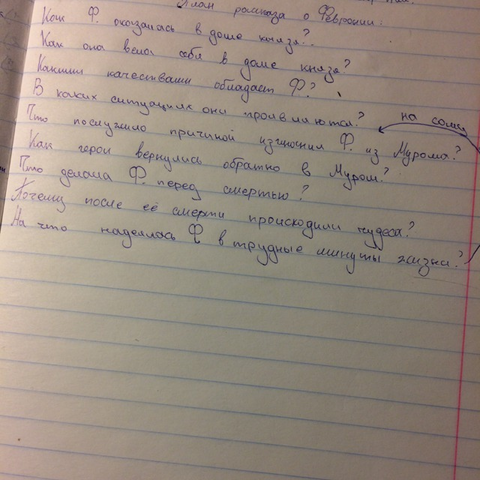 План рассказа о Февронии
Как Ф. оказалась в доме князя?
Как она вела себя в доме князя?
Какими качествами обладает Ф?
В каких ситуациях они проявляются?
на
Что послужило причиной изгнания Ф. из Мурома?
Как герои вернулись обратно в Муром?
Что делала Ф. перед смертью?
Почему после её смерти происходили чудеса?
На что надеялась Ф в трудные минуты жизни?